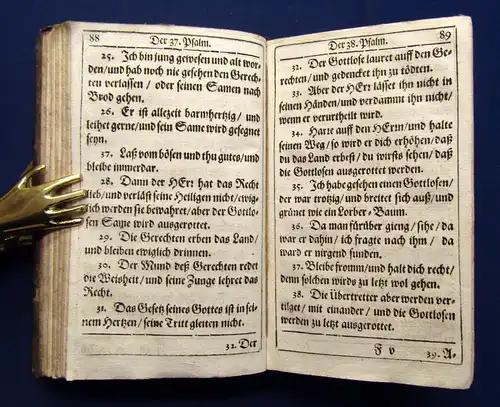 88
Der 37. Psalm.
25. Ich bin jung gewesen und alt wor-
den/und hab noch nie gesehen den Gerech-
ten verlassen / oder seinen Samen nach
Brod gehen.
26. Er ist allezeit barmhertzig / und
leihet gerne/und sein Same wird gesegnet
seyn.
37. Laß vom bösen und thu gutes/und
bleibe immerdar.
28. Dann der HErr hat das Recht
lieb/und verläst seine Heiligen nicht/ewig-
lich werden sie bewahret/aber der Gottlo-
sen Same wird ausgerottet.
29. Die Gerechten erben das Land/
und bleiben ewiglich drinnen.
30. Der Mund deß Gerechten redet
die Weisheit / und seine Zunge lehret das
Recht.
31. Das Gesetz seines Gottes ist in sei-
nem Hertzen / seine Tritt gleiten nicht.
32. Der
Der 38. Psalm.
89
32. Der Gottlose lauret auff den Ge-
rechten / und gedencket ihn zu tödten.
33. Aber der HErr lässet ihn nicht in
seinen Händen/und verdammt ihn nicht/
wenn er verurtheilt wird.
34. Harre auff den HErrn/und halte
seinen Weg / so wird er dich erhöhen/ daß
du das Land erbest / du wirsts sehen/ daß
die Gottlosen ausgerottet werden.
35. Ich habe gesehen einen Gottlosen/
der war trotzig/ und breitet sich auß/und
grünet wie ein Lorber-Baum.
36. Da man fürüber gieng / sihe / da
war er dahin / ich fragte nach ihm / da
ward er nirgend funden.
37. Bleibe fromm/und halt dich recht/
denn solchen wirds zu letzt wol gehen.
38. Die Übertretter aber werden ver-
tilget / mit einander / und die Gottlosen
werden zu letzt ausgerottet.
F v
39. A-